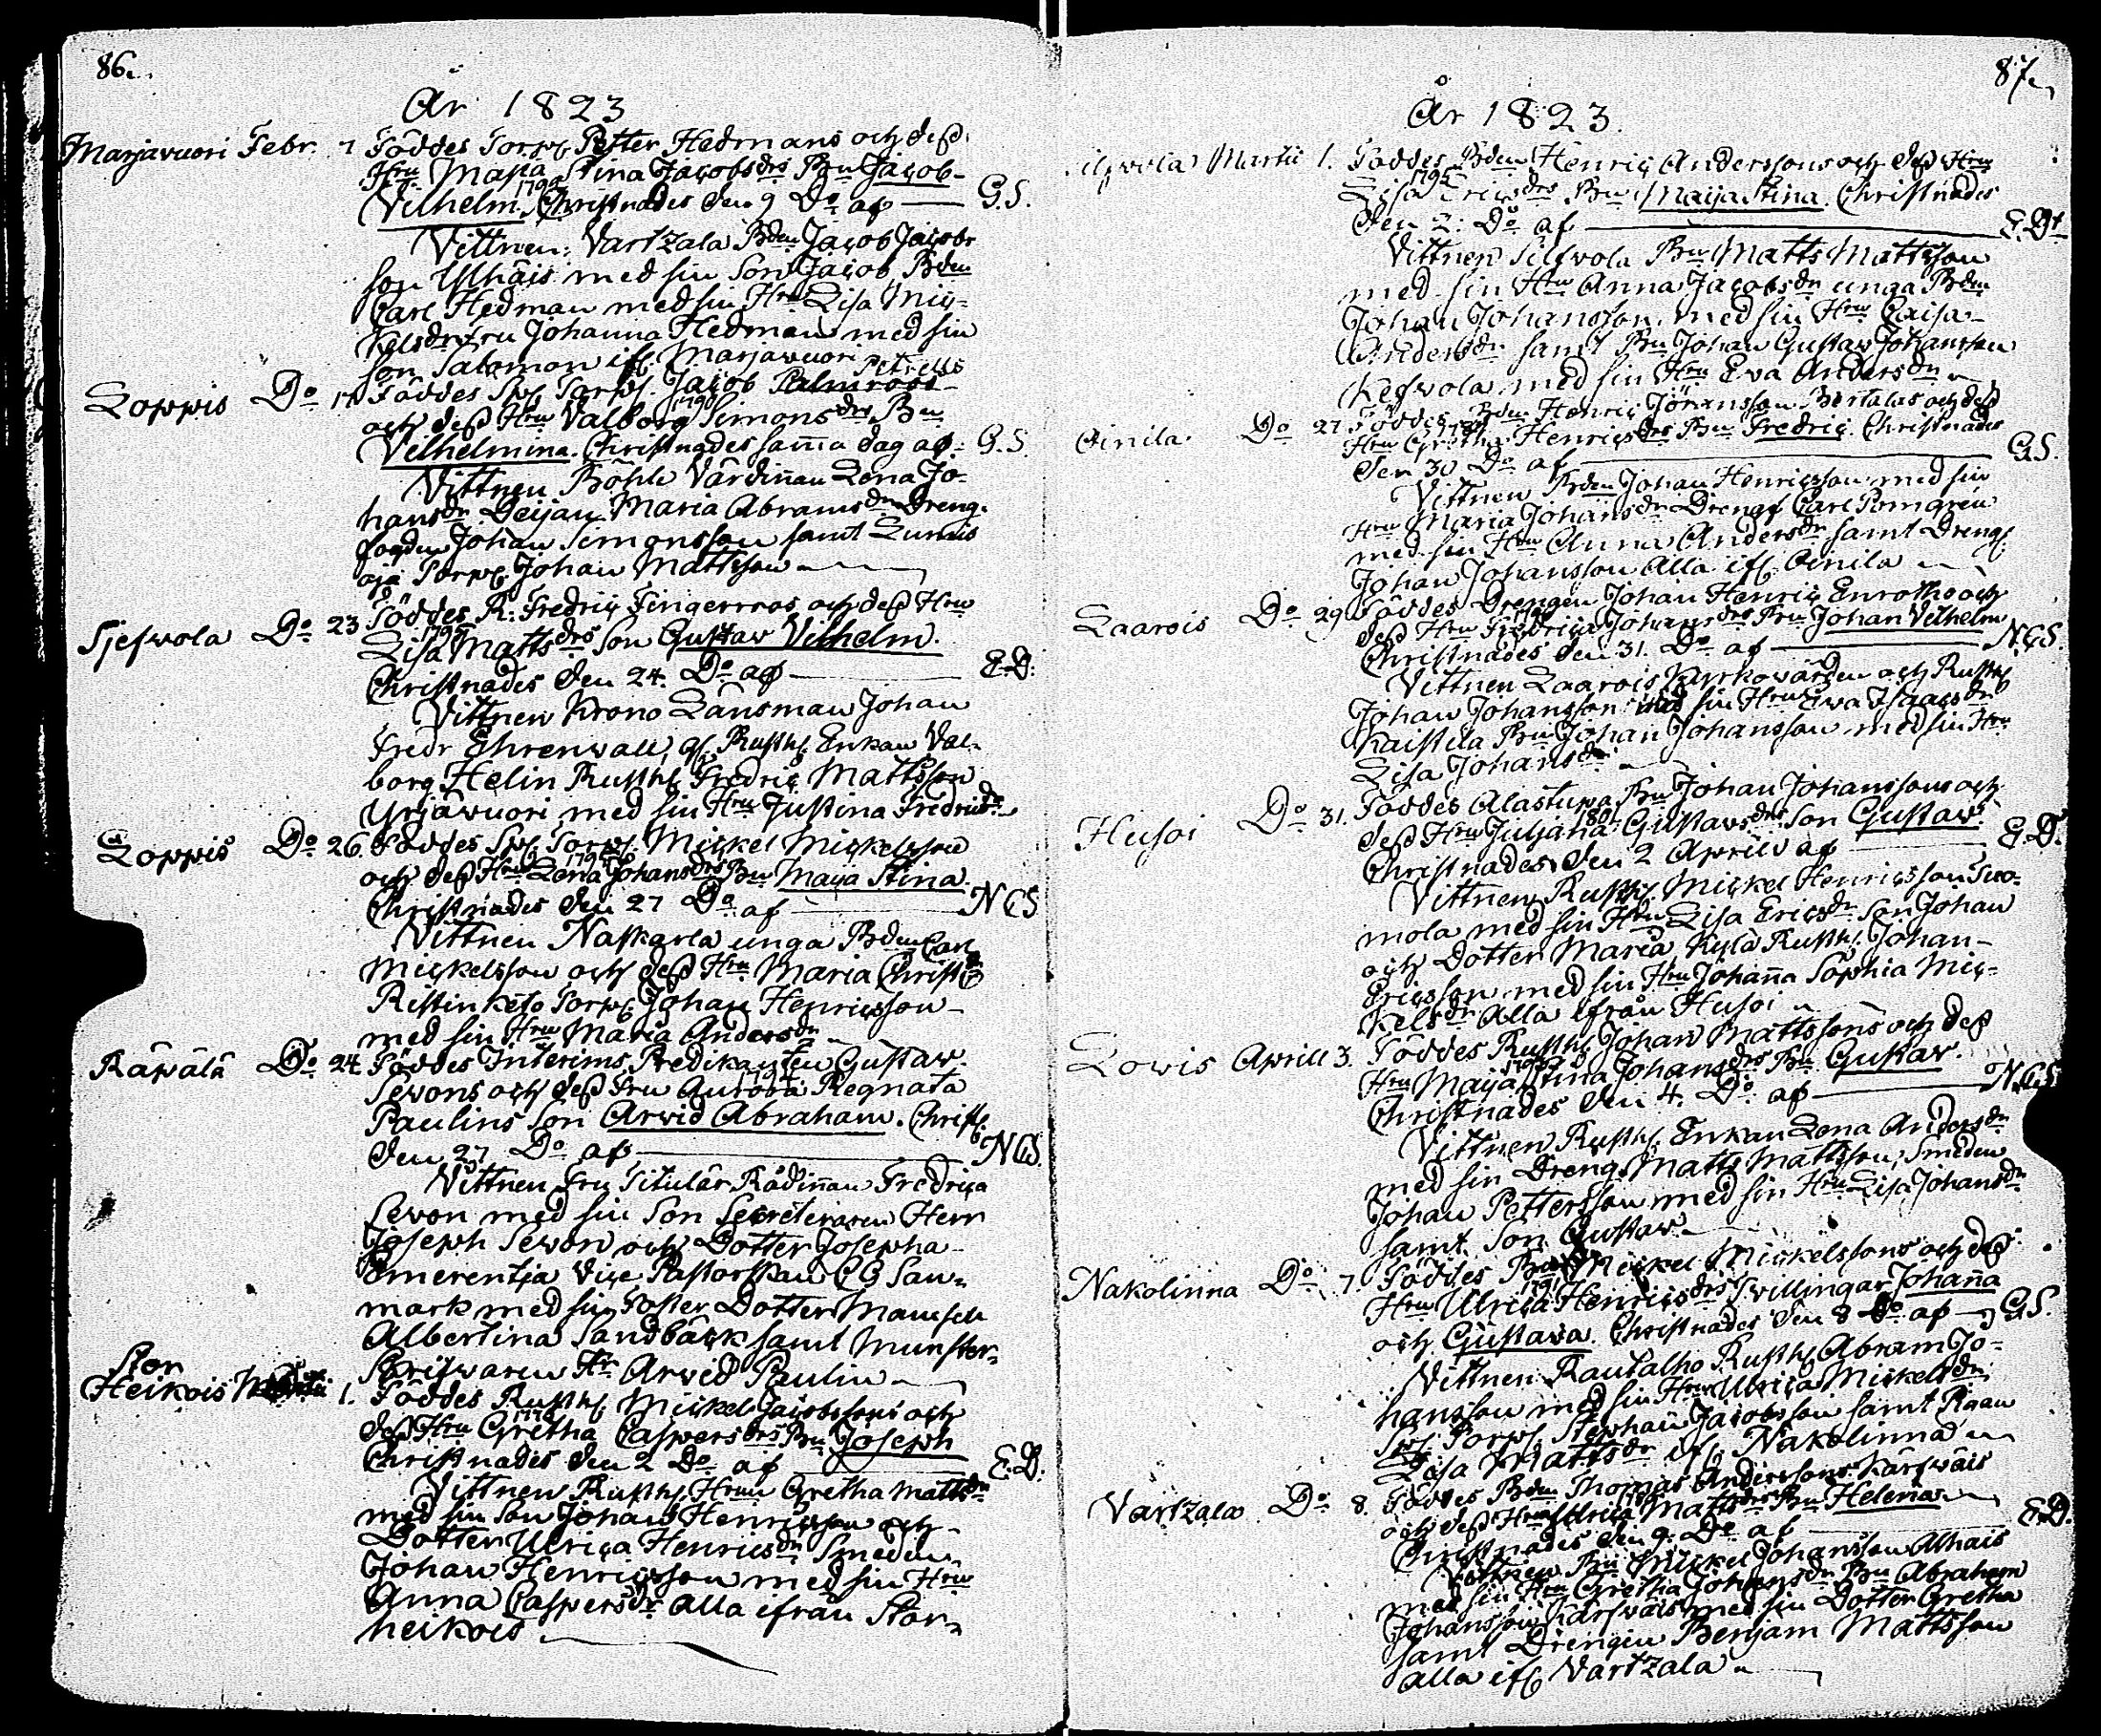 86.
År 1823
Marjavuori Febr. 7 Föddes Torp. Petter Hedmans och dess
Hru Maja Stina Jacobsdrs Bn Jacob-
1792
Vilhelm. Christnades den 9 Do af — G.S.
Vittnen: Vartzala Bden Jacob Jacobs
son Ylhäis med sin Son Jacob Bden
Carl Hedman med sin Hru Lisa Mic-
kelsdr Fru Johanna Hedman med sin
Son Salomon ifr. Marjavuori
Petrells
Loppis Do 17 Föddes Sp. Torp. Jacob Palmroos
och dess Hru Valborg Simonsdrs Bn
1790
Velhelmina. Christnades samma dag af: G.S.
Vittnen Böhle Värdinnan Lena Jo-
hansdr Deijan Maria Abramsdr Dreng-
fogden Johan Simonsson samt
oja Torp. Johan Mattsson
Sjefvola Do 23 Föddes R: Fredric Fingerroos och dess Hru
Lisa Mattsdrs Son Gustav Vilhelm.
Christnades den 24. Do af — E.D.
Vittnen Krono Länsman Johan
Fredr Ehrenwall, Rusth. Enkan Val-
borg Helin Rusth. Fredric Mattsson
Yrjävuori med sin Hru Justina Fredricsdr
Loppis Do 26. Föddes Sp. Torp. Mickel Mickelsson
och dess Hru Lena Johansdrs Bn Maija Stina.
Christnades den 27 Do af — NCS
Vittnen Naskarla unga Bden Carl
Mickelsson och dess Hru Maria Christ
Ristinketo Torp. Johan Henricsson
med sin Hru Maria Andersdr
Räpälä Do 24 Föddes Interims Predikanten Gustav
Sevons och dess Fru Aurora Regnata
Paulins Son Arvid Abraham. Christ.
den 27 Do af — NCS.
Vittnen Fru Titulär Rådinnan Fredrica
Sevon med sin Son Secreteraren Herr
Joseph Sevon och Dotter Josepha
Emerentja Vice Pastorskan CG San-
mark med sin Foster Dotter Mamsell
Albertina Sandbäck samt Munster-
Skrifvaren Hr Arvid Paulin
Stor
Heikois Martii 1. Föddes Rusth. Mickel Jacobssons och
dess Hru Gretha Caspersdrs Bn Joseph
Christnades den 2 Do af — E.D.
Vittnen Rusth. Hrun Gretha Mattsdr
med sin Son Johan Henricsson och
Dotter Ulrica Henricsdr Smeden
Johan Henricsson med sin Hru
Anna Caspersdr alla ifrån Stor-
heikois
87.
År 1823.
Martii 1. Föddes Bden Henric Anderssons och dess Hru
1795
Lisa Ericsdrs Bn Maija Stina. Christnades
den 2: Do af — E.Dt
Vittnen Silfvola Bn Matts Mattsson
med sin Hru Anna Jacobsdr unga Bden
Johan Johansson med sin Hru Caisa
Andersdr samt Bn Johan Gustav Johansson
Kefvola med sin Hru Eva Andersdr
Oinila Do 27. Föddes Bden Henric Jöransson Bertalas och dess
Hru Gretha Henricsdrs Bn Fredric. Christnades
den 30 Do af — G.S.
Vittnen Bden Johan Henricsson med sin
Hru Maria Johansdr Dreng Carl Pomgren
med sin Hru Anna Andersdr samt Dreng.
Johan Johansson alla ifr. Oinila
Laarois Do 29 Föddes Drengen Johan Henric Enroths och
dess Hru Fredrica Johansdrs Bn Johan Vilhelm
Christnades den 31. Do af — N.C.S.
Vittnen Laarois Kyrkovärden och Rusth
Johan Johansson med sin Hru Eva Isaacsdr
Kaistila Bn Johan Johansson med sin Hru
Lisa Johansdr
Husoi Do 31. Föddes Alastupa Bn Johan Johanssons och
1801
dess Hru Juljana Gustavsdrs Son Gustav
Christnades den 2 Aprill af — E.D.
Vittnen Rusth. Mickel Henricsson Tuo-
mola med sin Hru Lisa Ericsdr Son Johan
och Dotter Maria Kylä Rusth. Johan
Ericsson med sin Hru Johanna Sophia Mic-
kelsdr alla ifrån Husoi
Lowis Aprill 3. Föddes Rusth. Johan Mattssons och dess
Hru Maija Stina Johansdrs Bn Gustav.
Christnades den 4. Do af — N.C.S
Vittnen Rusth. Enkan Lena Andersdr
med sin Dreng Matts Mattsson, Smeden
Johan Pettersson med sin Hru Lisa Johansdr
samt Son Gustav
Nakolinna Do 7. Föddes Bn Mickel Mickelssons och dess
Hru Ulrica Henricsdrs Tvillingar Johanna
och Gustava. Christnades den 8 Do af — G.S.
Vittnen Rautalho Rusth Abram Jo-
hansson med sin Hru Ulrica Mickelsdr
Sp. Torp. Stephan Jacobsson samt Pigan
Lisa Mattsdr ifr Nakolinna
Vartzala Do 8. Föddes Bden Thomas Anderssons Kärfväis
och dess Hru Ulrica Mattsdrs Bn Helena
Christnades den 9. Do af — E.D.
Vittnen Bn Mickel Johansson Alhais
med sin Hru Gretha Johansdr Bn Abraham
Johansson Kärfväis med sin Dotter Gretha
samt Drengen Benjam Mattsson
alla ifr Vartzala